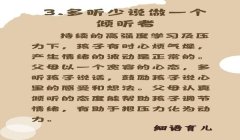 3.多听少说做一个
倾听者
持续的高强度学习及压
力下，孩子有时心烦气燥，
产生情绪的波动是正常的。
父母以一个宽容的心态，多
听孩子说话，鼓励孩子说心
里的感受和想法。父母认真
倾听的态度能帮助孩子调节
情绪，有助于把压力化为动
力。
细语育儿